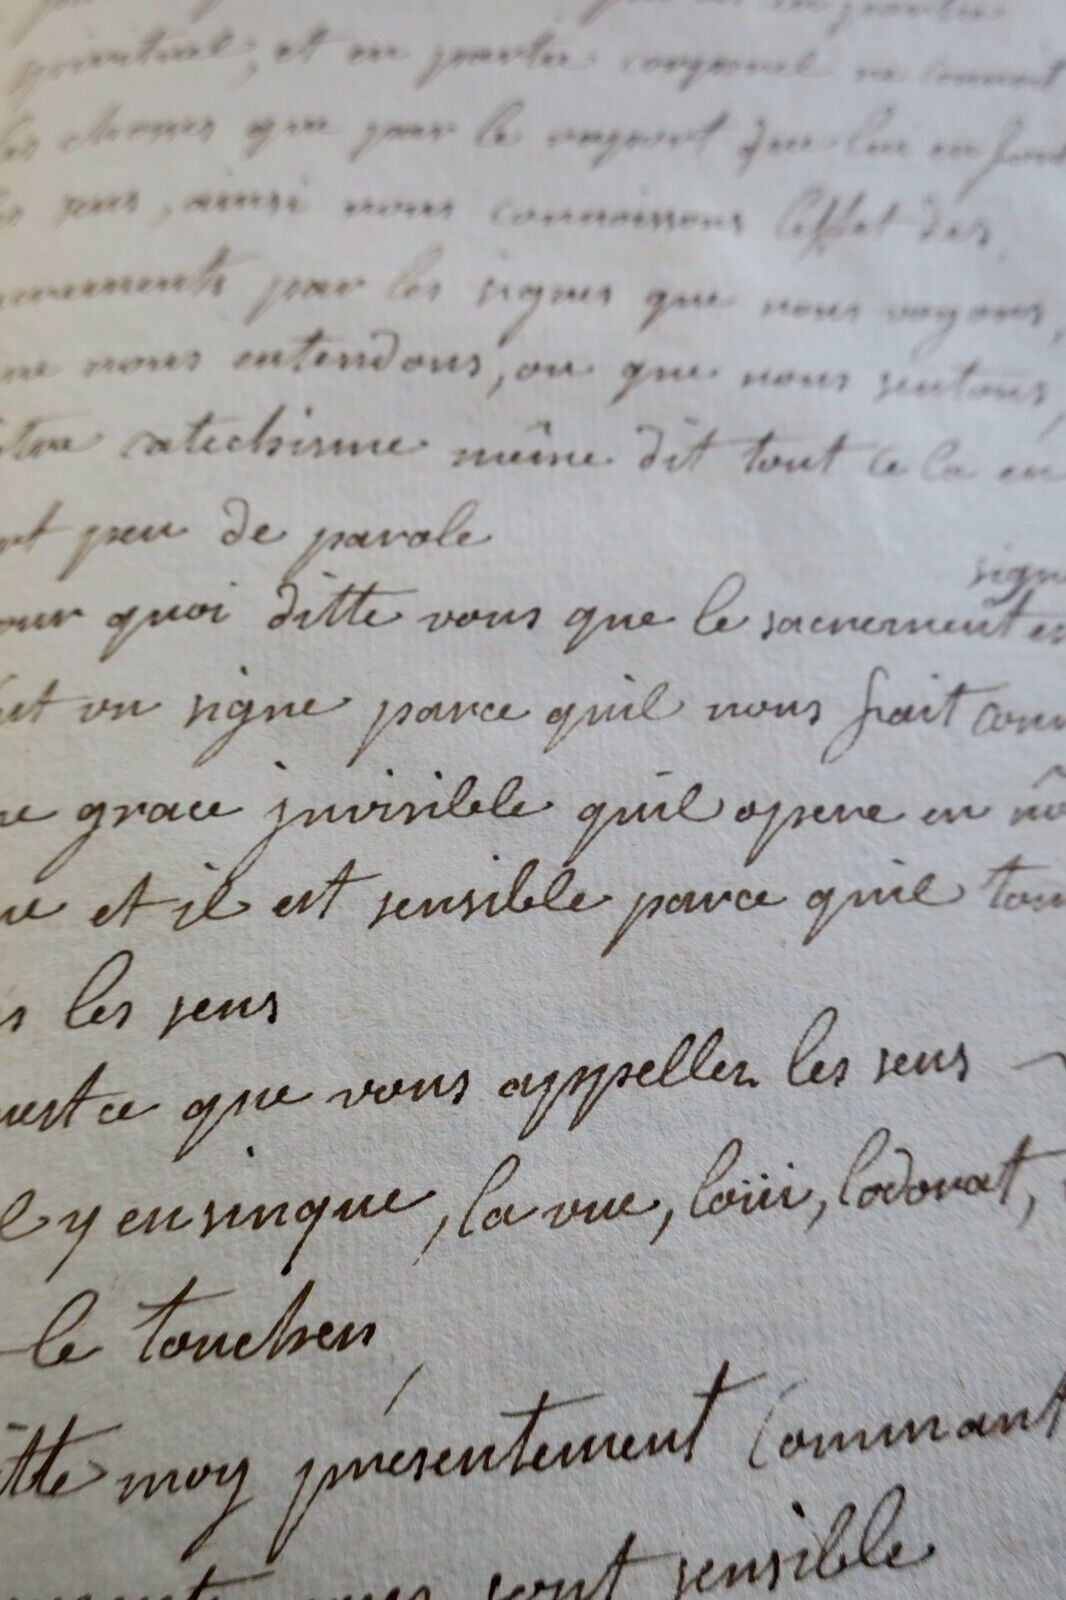 spirituel, et en partie corporel ne connoit
les choses que par le raport que lui en font
les sens, ainsi nous connoissons leffet des
par les signes que nous voyons,
que nous entendons, ou que nous sentons,
catechisme même dit tout cela en
peu de parole
pour quoi ditte vous que le sacrement
signe
un signe parce quil nous fait
grace jnvisible quil opere en
et il est sensible parce quil
les sens
que vous appeller les sens
il y en sinque, la vue, loüir, lodorat,
le toucher
ditte moy présentement Commant
sont sensible